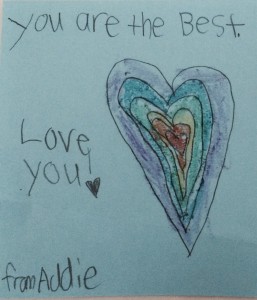 you are the Best.
Love
you!
from Addie